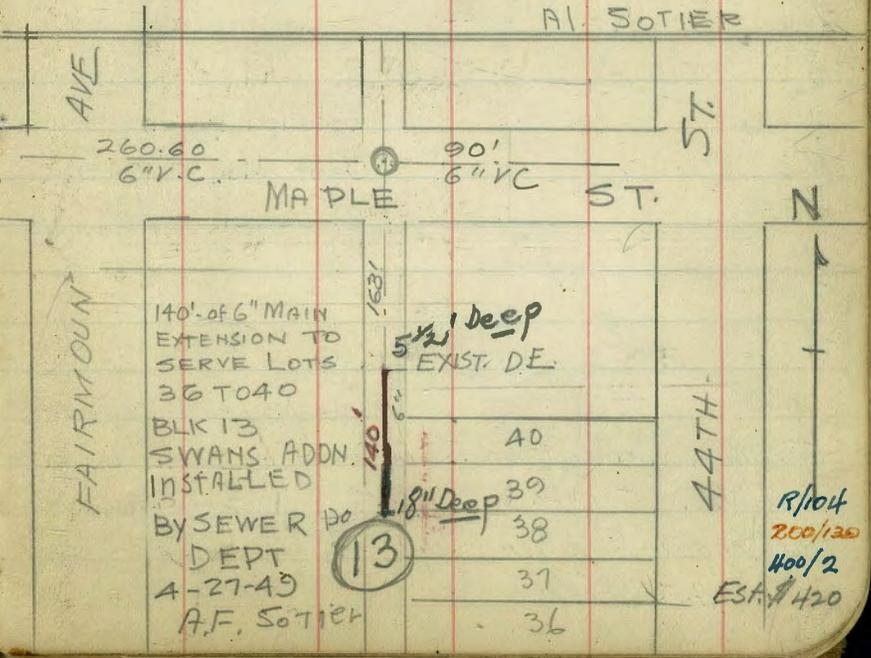 Al. SOTIER
AVE
ST.
260.60
6" V.C.
90'
6" VC
MAPLE ST.
N
163'
FAIRMOUNT
140'-of 6" MAIN
EXTENSION TO
SERVE LOTS
36 TO 40
BLK 13
SWANS ADDN.
INSTALLED
BY SEWER
DEPT
4-27-49
A.F. SOTIER
5 1/2' Deep
EXIST. D.E.
6"
140'
18" Deep
13
40
39
38
37
36
44TH
R/104
200/130
400/2
Est. # 420